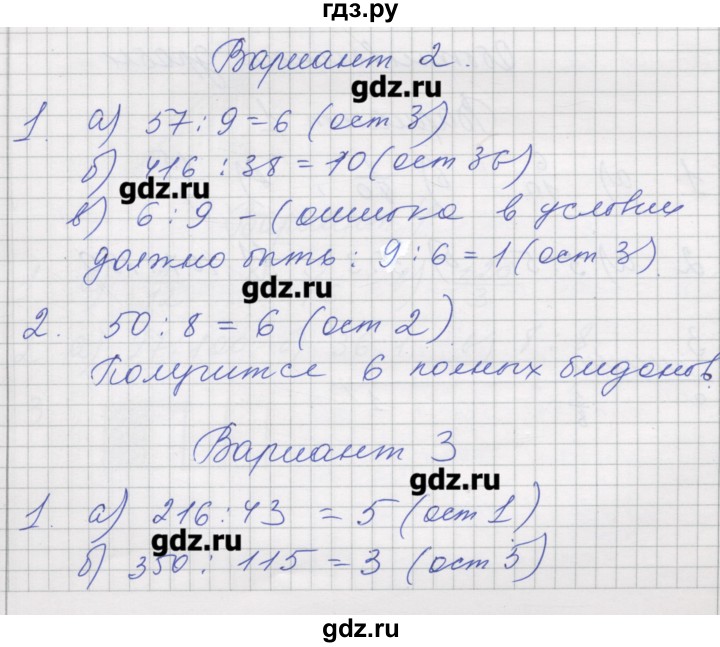 гдз.ру
Вариант 2.
gdz.ru
1. а) 57 : 9 = 6 (ост 3)
б) 416 : 38 = 10 (ост 36)
gdz.ru
в) 6 : 9 - (ошибка в условии
должно быть: 9 : 6 = 1 (ост 3)
gdz.ru
2. 50 : 8 = 6 (ост 2)
Получится 6 полных бидонов.
Вариант 3
gdz.ru
1. а) 216 : 43 = 5 (ост 1)
gdz.ru
б) 350 : 115 = 3 (ост 5)
gdz.ru